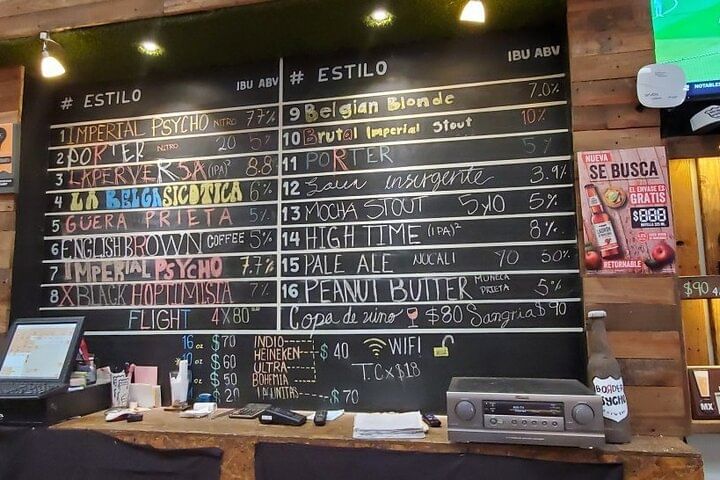 # ESTILO IBU ABV
1 IMPERIAL PSYCHO NITRO 7.7%
2 PORTER NITRO 20 5%
3 LAPERVERSA (IPA)² 8.8
4 LA BELGASICOTICA 6%
5 GÜERA PRIETA 5%
6 ENGLISH BROWN COFFEE 5%
7 IMPERIAL PSYCHO 7.7%
8 XBLACK HOPTIMISTA 7%
FLIGHT 4X80
# ESTILO IBU ABV
9 Belgian Blonde 7.0%
10 Brutal Imperial Stout 10%
11 PORTER 5%
12 Sour insurgente 3.9%
13 MOCHA STOUT 5%
14 HIGH TIME (IPA)² 8%
15 PALE ALE
16 PEANUT BUTTER MUÑECA PRIETA 5%
Copa de vino $80 Sangria $90
16 oz $70
$60
$50
$20
INDIO
HEINEKEN
ULTRA
BOHEMIA
$40
$70
WIFI
T.C x $18
NUEVA
SE BUSCA
EL ENVASE ES
GRATIS
$888
RETORNABLE
BORDER
PSYCHO
$90
MX
NOTABLES